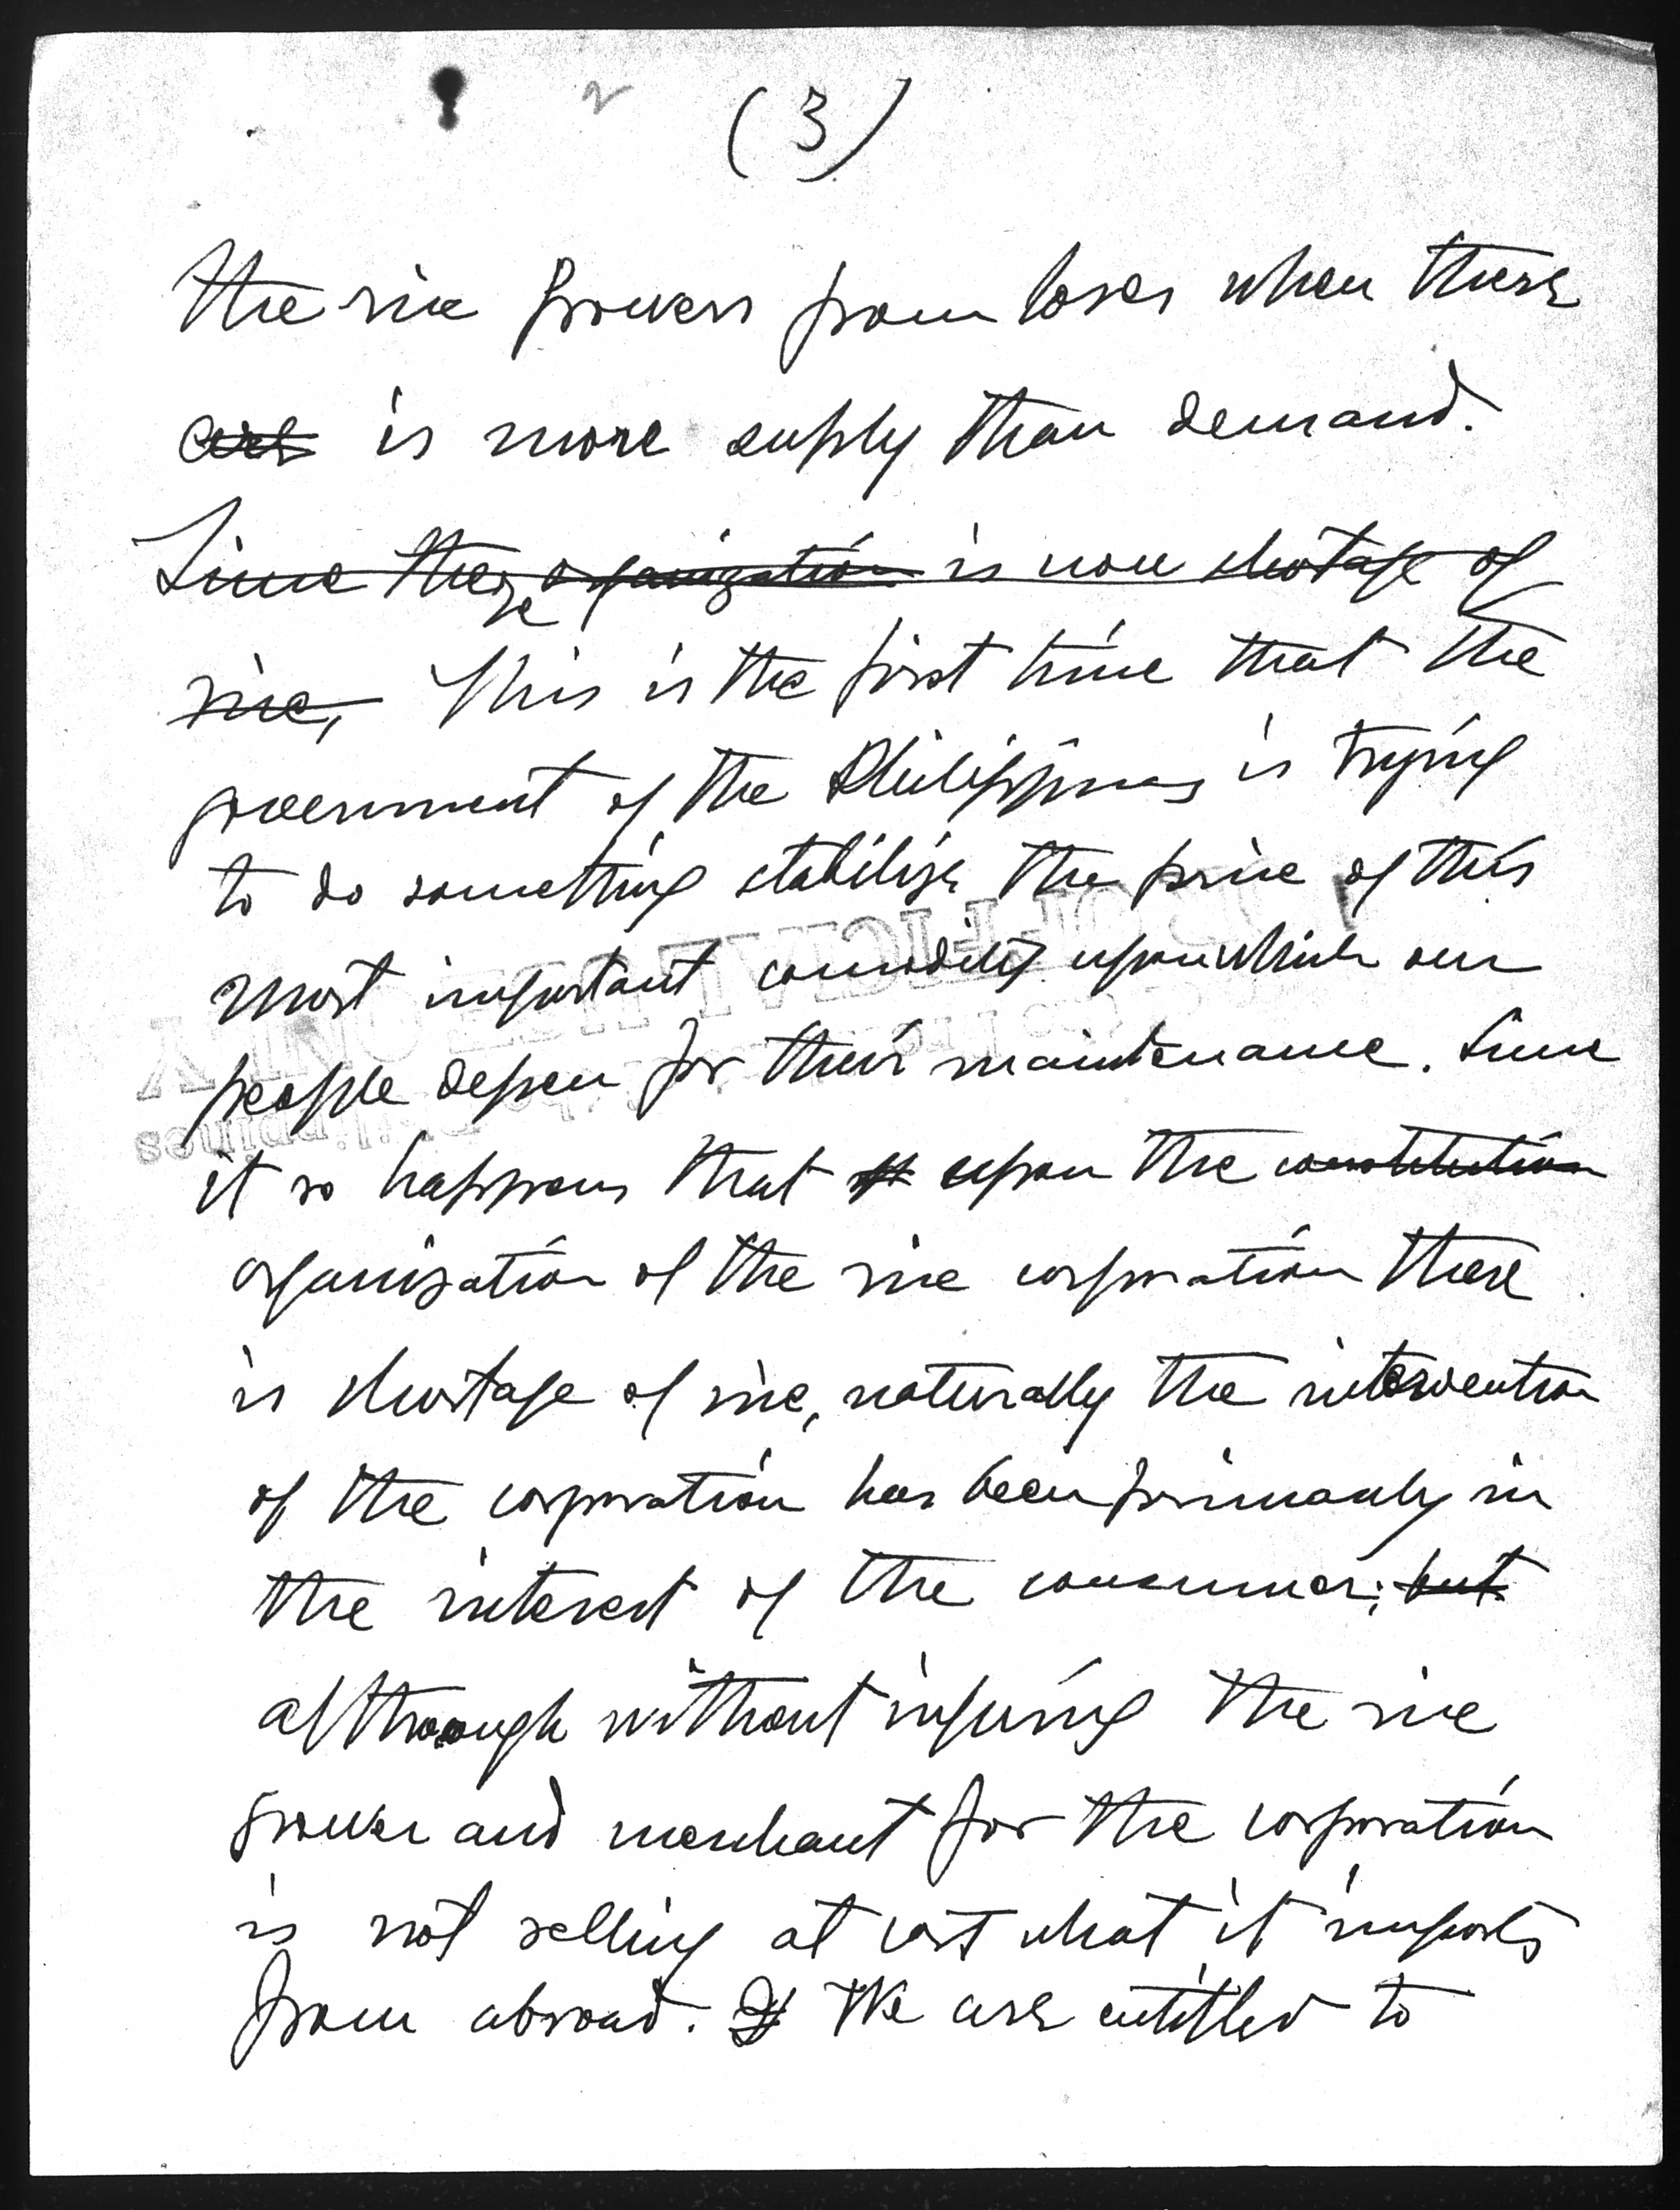 2
(3)
the rice growers from loses when there
is more suply than demand.
Since there organization is now shortage of
rice, This is the first time that the
government of the Philippines is trying
to do something stabilize the price of this
most important comodity upon which our
people depen for their maintenance. Since
it so happens that upon the constitution
organization of the rice corporation there
is shortage of rice, naturally the intervention
of the corporation has been primarily in
the interest of the consumer; but
although without injuring the rice
grower and merchant for the corporation
is not selling at cost what it imports
from abroad. We are entitled to
OFFICIAL USE ONLY